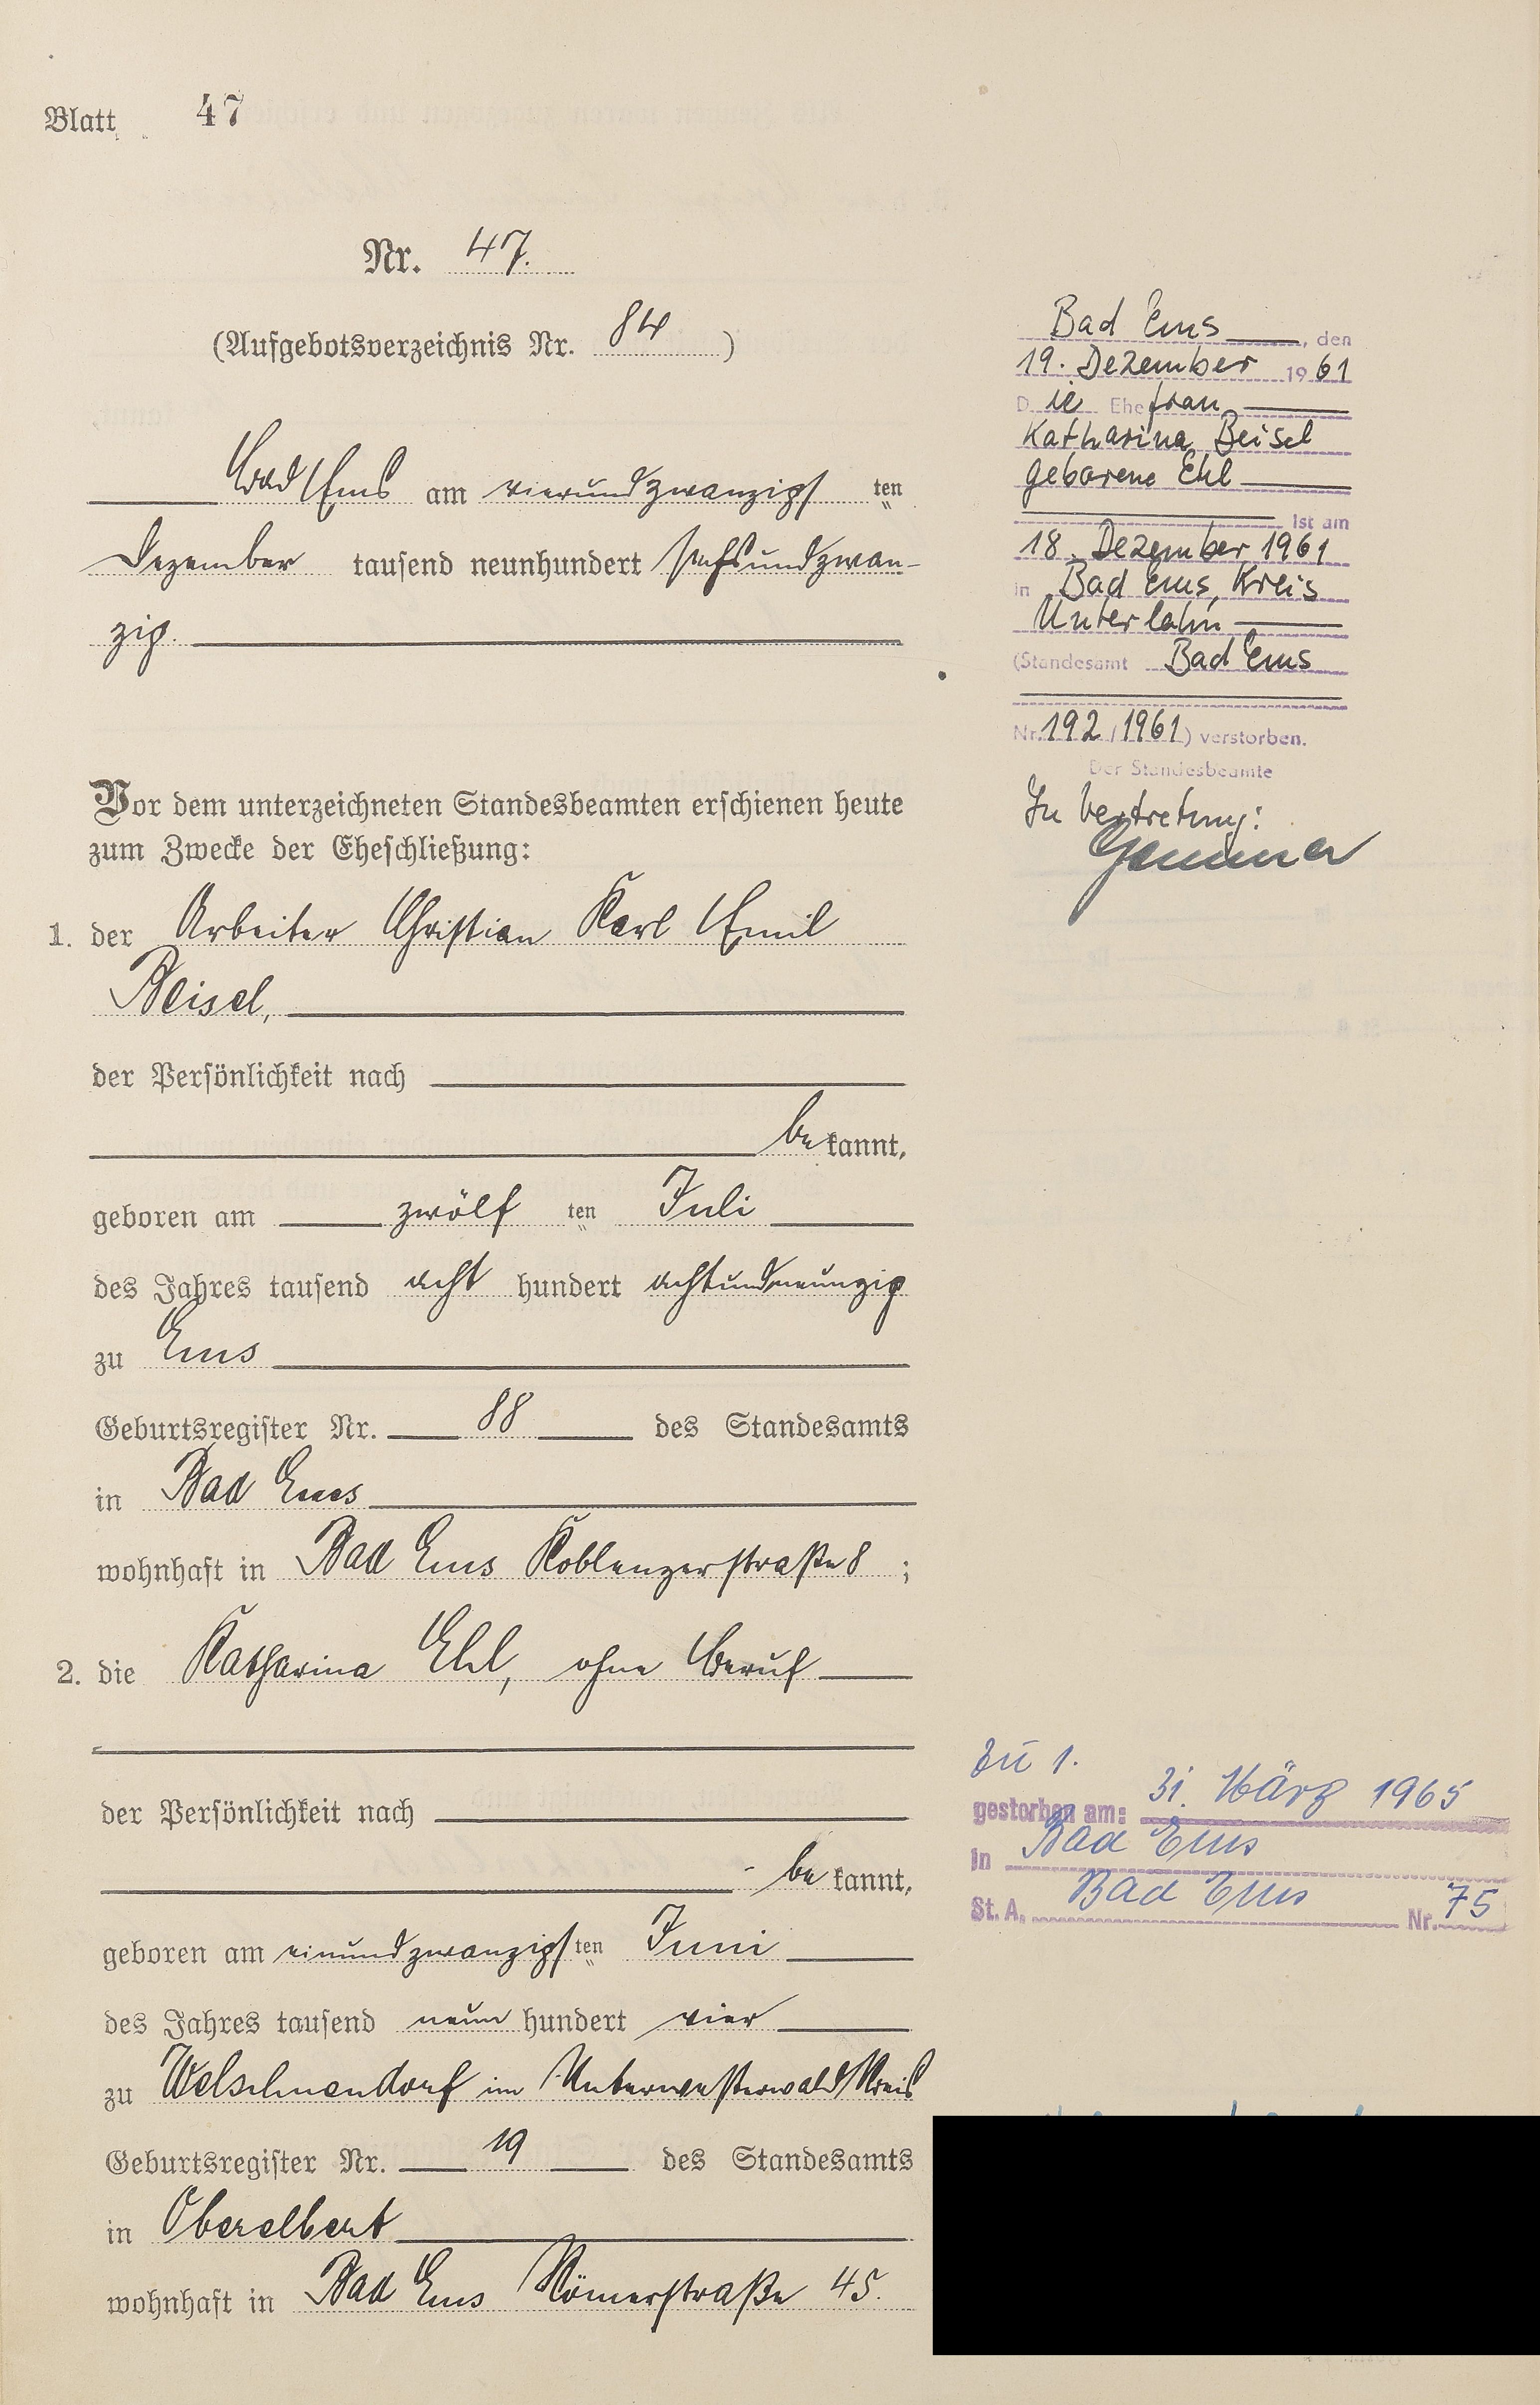 Blatt 47
Nr. 47.
(Aufgebotsverzeichnis Nr. 84)
Bad Ems am vierundzwanzigsten
Dezember tausend neunhundert sechsundzwan-
zig.
Vor dem unterzeichneten Standesbeamten erschienen heute
zum Zwecke der Eheschließung:
1. der Arbeiter Christian Karl Emil
Beisel,
der Persönlichkeit nach
bekannt,
geboren am zwölften Juli
des Jahres tausend acht hundert achtundneunzig
zu Ems
Geburtsregister Nr. 88 des Standesamts
in Bad Ems
wohnhaft in Bad Ems Koblenzerstraße 8;
2. die Katharina Ehl, ohne Beruf
der Persönlichkeit nach
bekannt,
geboren am einundzwanzigsten Juni
des Jahres tausend neun hundert vier
zu Welschnendorf im Unterwesterwald Kreis
Geburtsregister Nr. 19 des Standesamts
in Oberelbert
wohnhaft in Bad Ems Römerstraße 45.
Bad Ems, den
19. Dezember 1961
Die Ehefrau
Katharina Beisel
geborene Ehl
ist am
18. Dezember 1961
in Bad Ems, Kreis
Unterlahn
(Standesamt Bad Ems
Nr. 192/1961) verstorben.
Der Standesbeamte
In Vertretung:
Zu 1.
gestorben am: 31. März 1965
in Bad Ems
St. A. Bad Ems Nr. 75